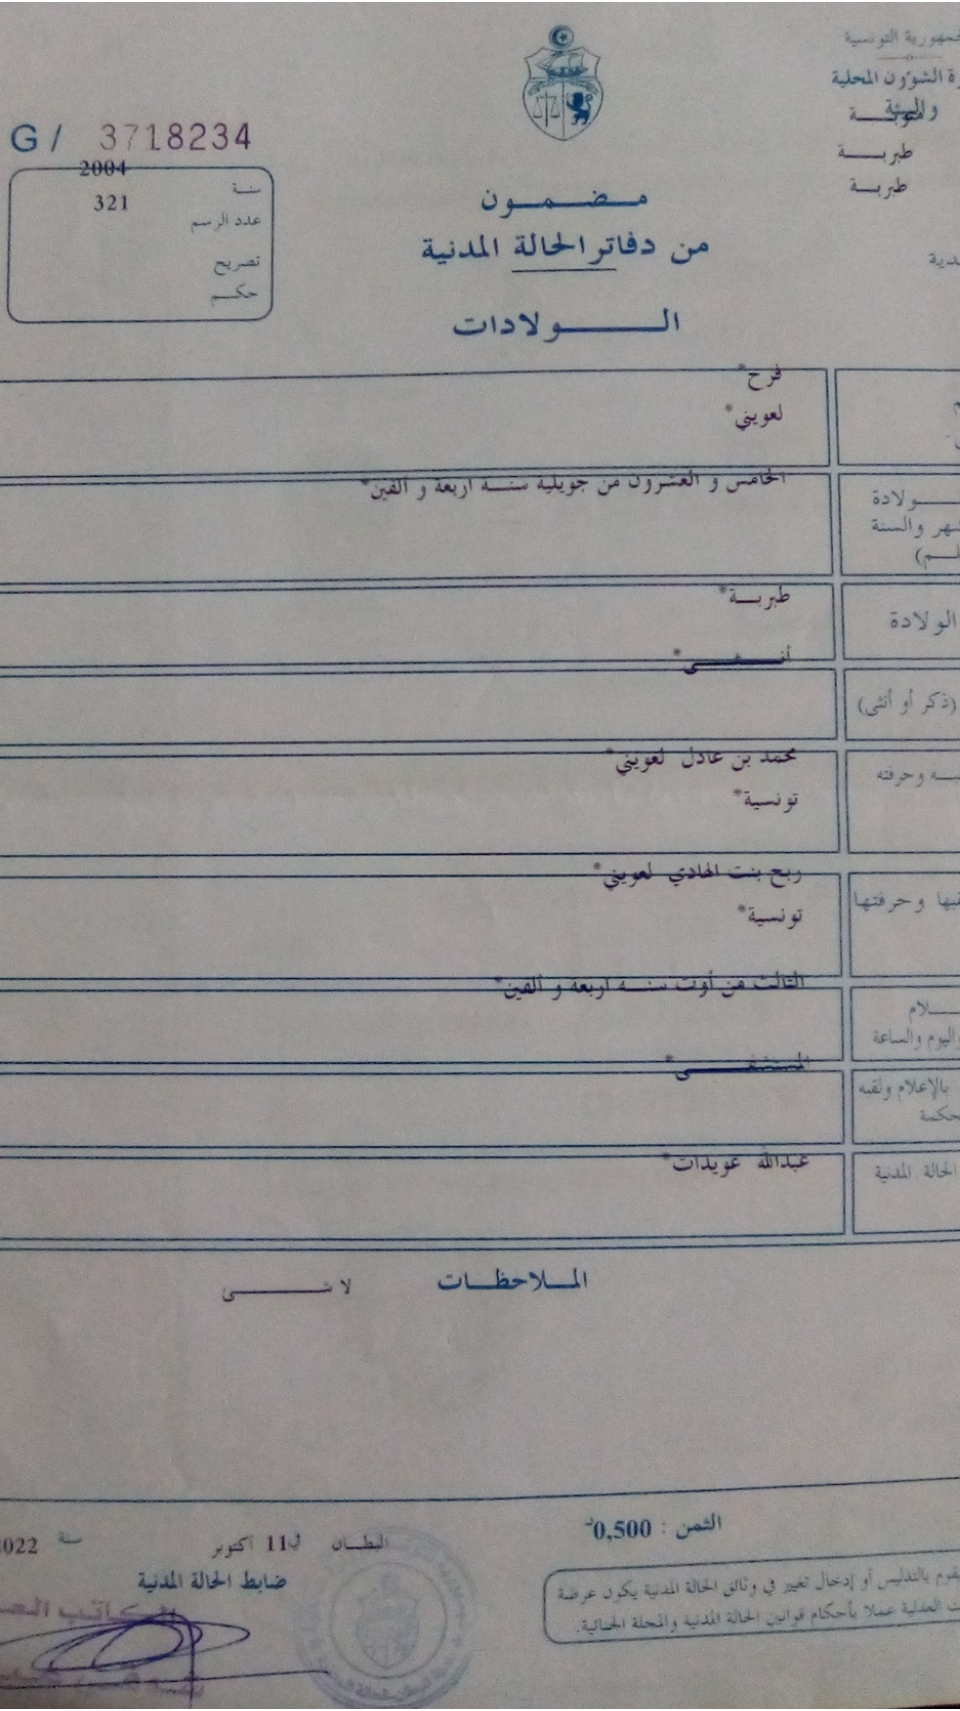 الجمهورية التونسية
وزارة الشؤون المحلية
والبيئة
منوبة
طبربة
طبربة
G / 3718234
سنة 2004
عدد الرسم 321
تصريح
حكم
مضمون
من دفاتر الحالة المدنية
الولادات
فرح*
لعويني*
الخامس و العشرون من جويلية سنة اربعة و الفين*
ولادة
والسنة
طبربة*
الولادة
أنثى*
(ذكر أو أنثى)
محمد بن عادل لعويني*
وحرفته
تونسية*
ربح بنت الهادي لعويني*
وحرفتها
تونسية*
الثالث من أوت سنة اربعة و الفين*
واليوم والساعة
المستشفى*
بالإعلام ولقبه
عبدالله عويدات*
الحالة المدنية
الملاحظات لا شى
الثمن : 0,500د
البطان في 11 اكتوبر سنة 2022
ضابط الحالة المدنية
يقوم بالتدليس أو إدخال تغيير في وثائق الحالة المدنية يكون عرضة
العدلية عملا بأحكام قوانين الحالة المدنية والمجلة الجنائية.